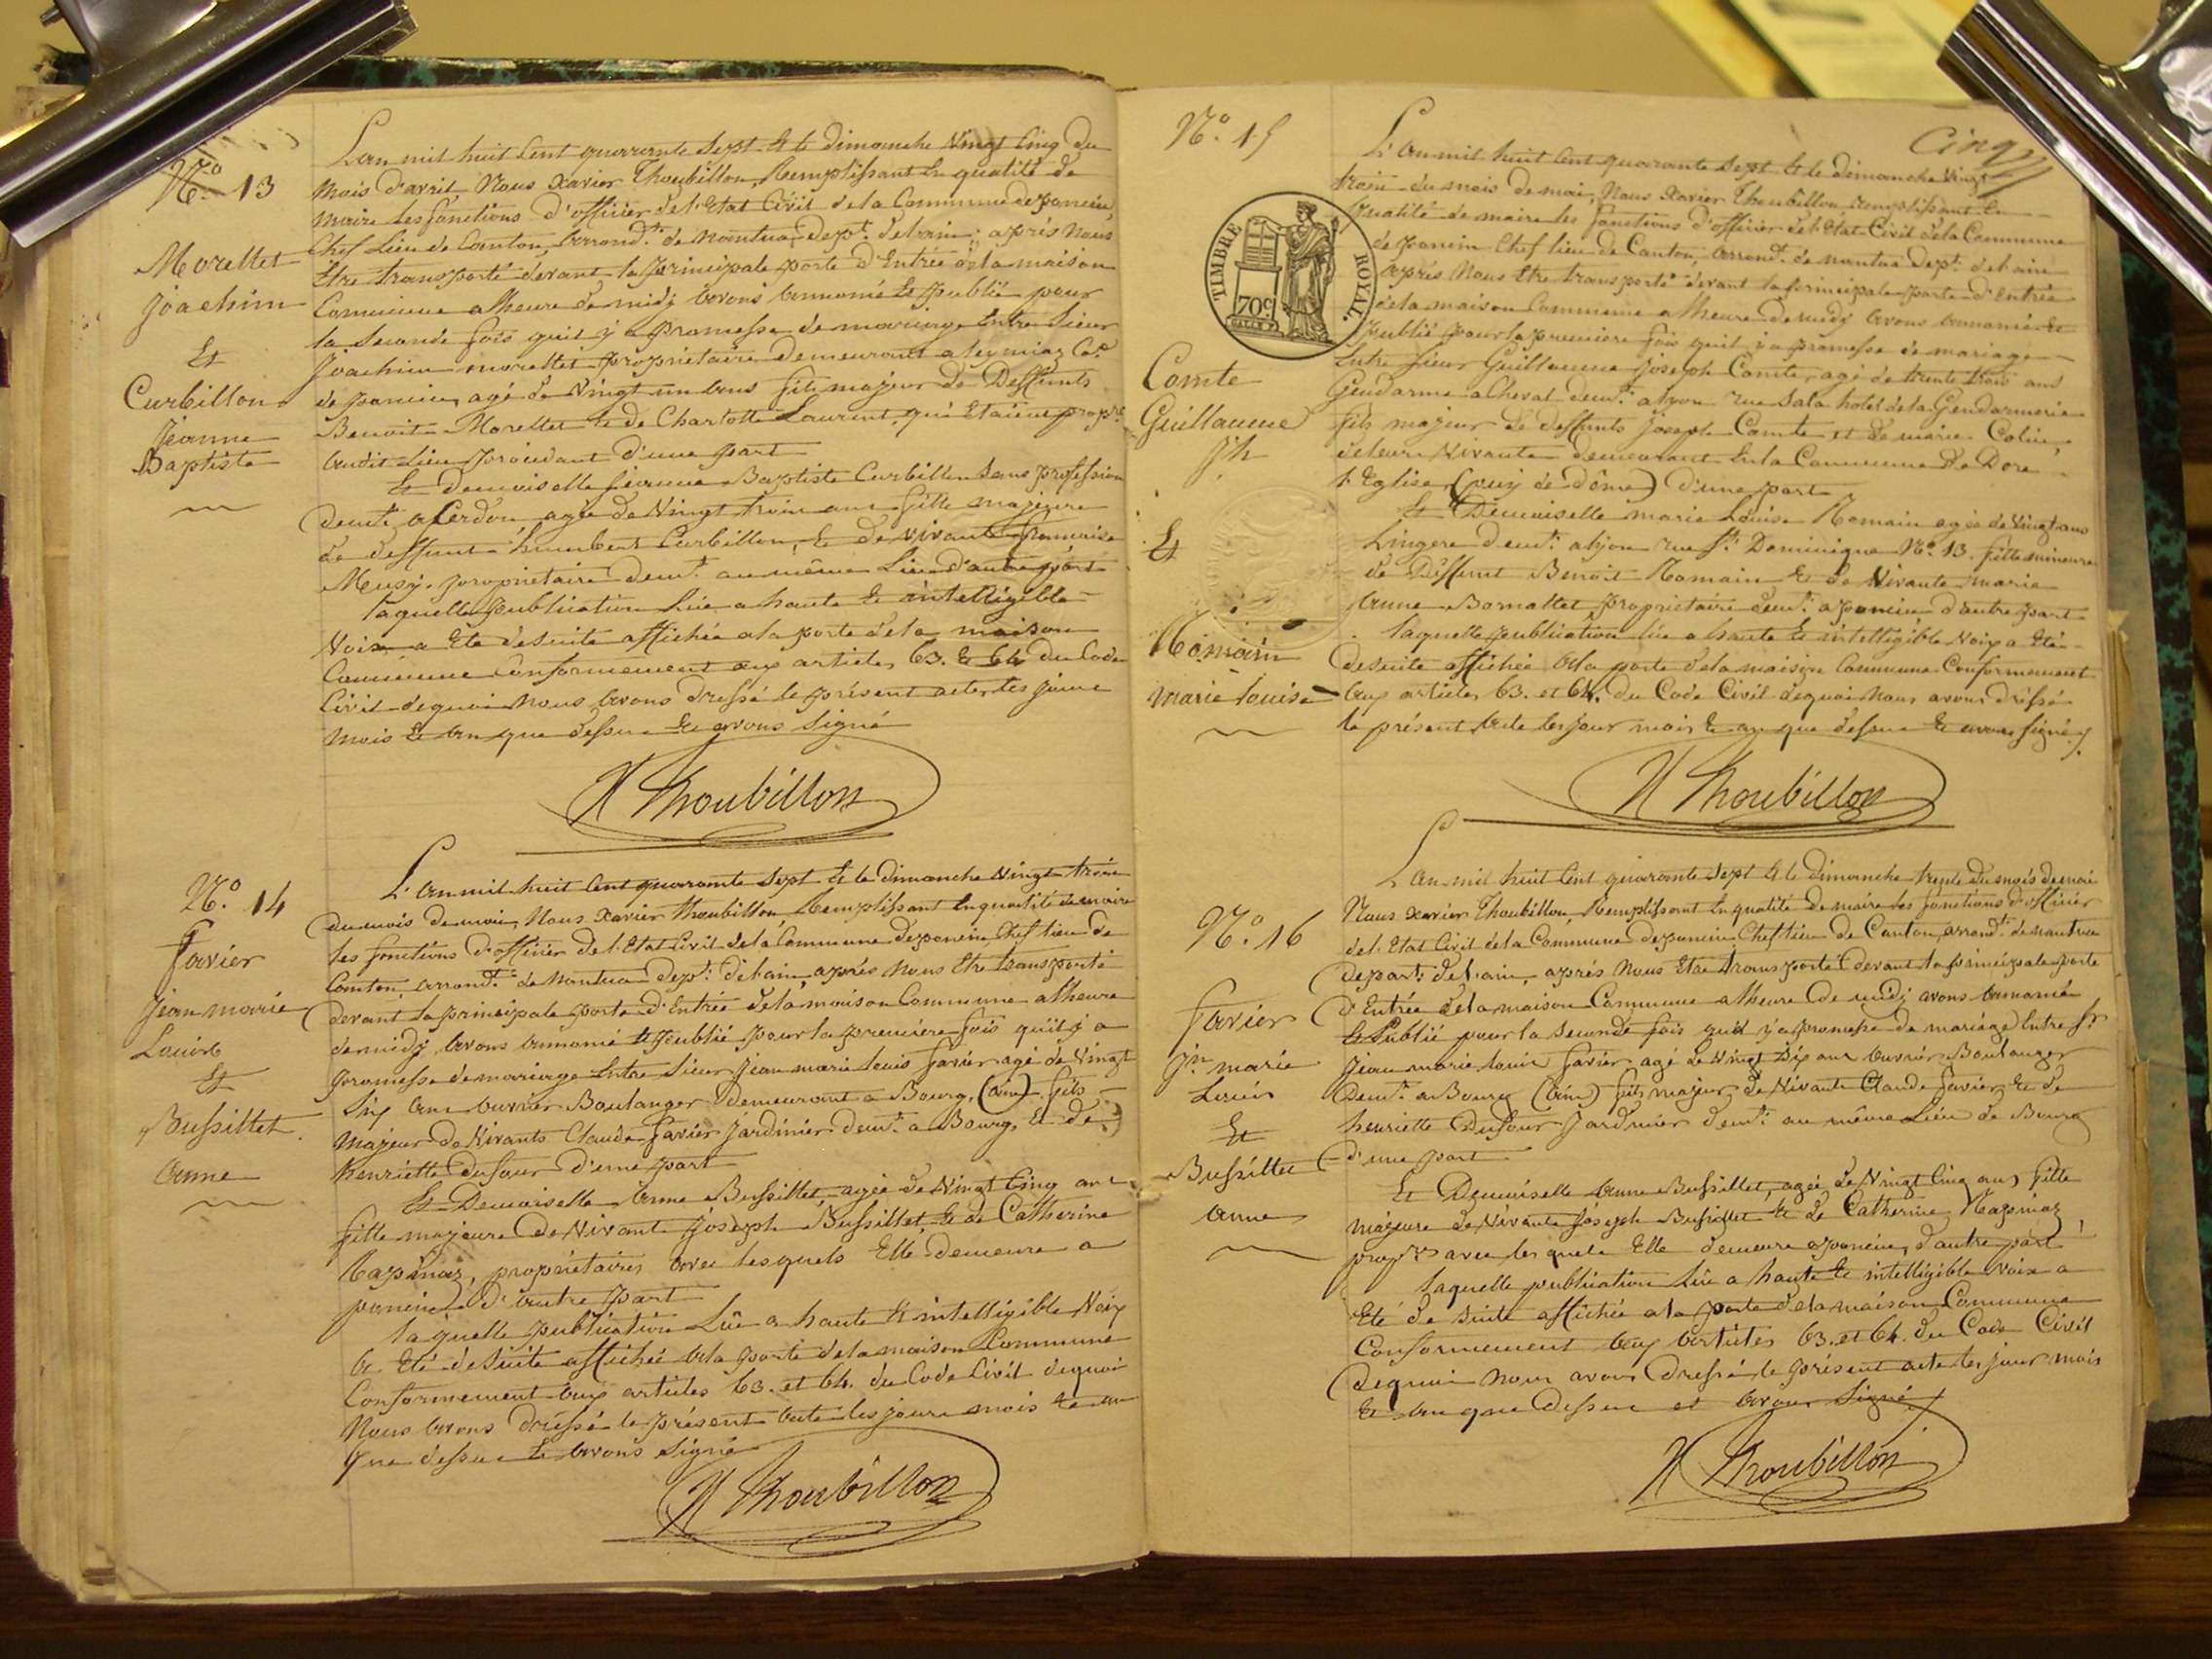 N.o 13
Morellet
joachim
Et
Curbillon
jeanne
Baptiste
L'an mil huit Cent quarante Sept & le dimanche Vingt Cinq du
Mois d'avril Nous Xavier Thoubillon, Remplissant En qualité de
maire les fonctions d'officier de l'Etat Civil de la Commune de poncin
Chef Lieu de Canton, arrond.t de nantua, Dep.t de l'ain; après Nous
Etre transporté devant la principale porte d'Entrée de la maison
Commune a l'heure de midy avons annoncé & publié pour
la Seconde fois quil y a promesse de mariage Entre Sieur
joachim morellet propriétaire demeurant a leymiaz C.e
de poncin, agé de Vingt un ans fils majeur de Deffunts
Benoit Morellet & de Charlotte Laurent, qui Etaient prop.res
audit Lieu d'une part
Et Demoiselle jeanne Baptiste Curbillon Sans profession
deme.t a Cerdon agée de Vingt trois ans fille majeure
de deffunt humbert Curbillon, & de vivante francoise
Musy, propriétaire deme.t au même Lieu d'autre part
laquelle publication Lue a haute & intelligible
Voix a Eté desuite affichée ala porte dela maison
Commune Conformement aux articles 63. & 64 du Code
Civil dequoi Nous avons dressé le présent acte les jour
Mois & an que dessus & avons Signé
X Thoubillon
N.o 14
favier
jean marie
Louis
Et
Bussillet
anne
L'an mil huit Cent quarante Sept & le dimanche Vingt trois
du mois de mai, Nous Xavier Thoubillon Remplissant En qualité de maire
les fonctions d'officier de l'Etat Civil dela Commune de poncin Chef lieu de
Canton, arrond.t de Nantua Dep.t de l'ain, après Nous Etre transporté
devant la principale porte d'Entrée dela maison Commune a l'heure
de midy avons annoncé & publié pour la première fois qu'il y a
promesse de mariage Entre Sieur jean marie Louis favier agé de Vingt
Six ans ouvrier Boulanger demeurant a Bourg, (ain) fils
majeur de Vivants Claude favier jardinier deme.t a Bourg, & de
henriette dufour d'une part
Et Demoiselle anne Bussillet, agée de Vingt Cinq ans
fille majeure de Vivant joseph Bussillet & de Catherine
propriétaires avec lesquels Elle demeure a
poncin d'autre part
laquelle publication Lue a haute & intelligible Voix
a Eté desuite affichée ala porte dela maison Commune
Conformement aux articles 63. et 64. du Code Civil dequoi
Nous avons dressé le présent acte les jour mois & an
que dessus & avons Signé
X Thoubillon
Cinq
N.o 15
TIMBRE ROYAL.
70c
Comte
Guillaume
jh
Et
Romain
marie louise
L'an mil huit Cent quarante Sept & le dimanche Vingt
trois du mois de mai, Nous Xavier Thoubillon remplissant En
qualité de maire les fonctions d'officier de l'Etat Civil dela Commune
de poncin Chef lieu de Canton, arrond.t de nantua Dep.t de l'ain
après Nous Etre transporté devant la principale porte d'Entrée
dela maison Commune a l'heure de midy avons annoncé &
publié pour la première fois qu'il y a promesse de mariage
Entre Sieur Guillaume joseph Comte, agé de trente trois ans
Gendarme a Cheval deme.t a lyon rue Sala hotel dela Gendarmerie
fils majeur de deffunts joseph Comte et de marie Colin
demeurant En la Commune de Dore
l'Eglise, (puy de dôme) d'une part
Et Demoiselle marie Louise Romain agée de Vingt ans
Lingere deme.t a lyon rue S.t Dominique N.o 13. fille mineure
de Deffunt Benoit Romain & de Vivante marie
anne Bornattet, propriétaire deme.t a poncin d'autre part
laquelle publication lue a haute & intelligible Voix a Eté
desuite affichée ala porte dela maison Commune Conformement
aux articles 63. et 64. du Code Civil dequoi Nous avons dressé
le présent acte les jour mois & an que dessus & avons signé
X Thoubillon
N.o 16
favier
j.n marie
Louis
Et
Bussillet
anne
L'an mil huit Cent quarante Sept & le dimanche trente du mois de mai
Nous Xavier Thoubillon, Remplissant En qualité de maire les fonctions d'officier
de l'Etat Civil dela Commune de poncin Chef lieu de Canton, arrond.t de nantua
depart.t de l'ain, après Nous Etre transporté devant la principale porte
d'Entrée dela maison Commune a l'heure de midy avons annoncé
& Publié pour la Seconde fois qu'il y a promesse de mariage Entre S.r
jean marie louis favier agé de Vingt Six ans ouvrier Boulanger
deme.t a Bourg (ain) fils majeur de Vivants Claude favier & de
henriette Dufour jardinier deme.t au même Lieu de Bourg
d'une part
Et Demoiselle anne Bussillet, agée de Vingt Cinq ans fille
majeure de Vivants joseph Bussillet & de Catherine
prop.res avec lesquels Elle demeure a poncin, d'autre part
laquelle publication Lue a haute & intelligible Voix a
Eté de Suite affichée ala porte dela maison Commune
Conformement aux articles 63. et 64. du Code Civil
dequoi nous avons dressé le présent acte les jour mois
& an que dessus et avons Signé
X Thoubillon